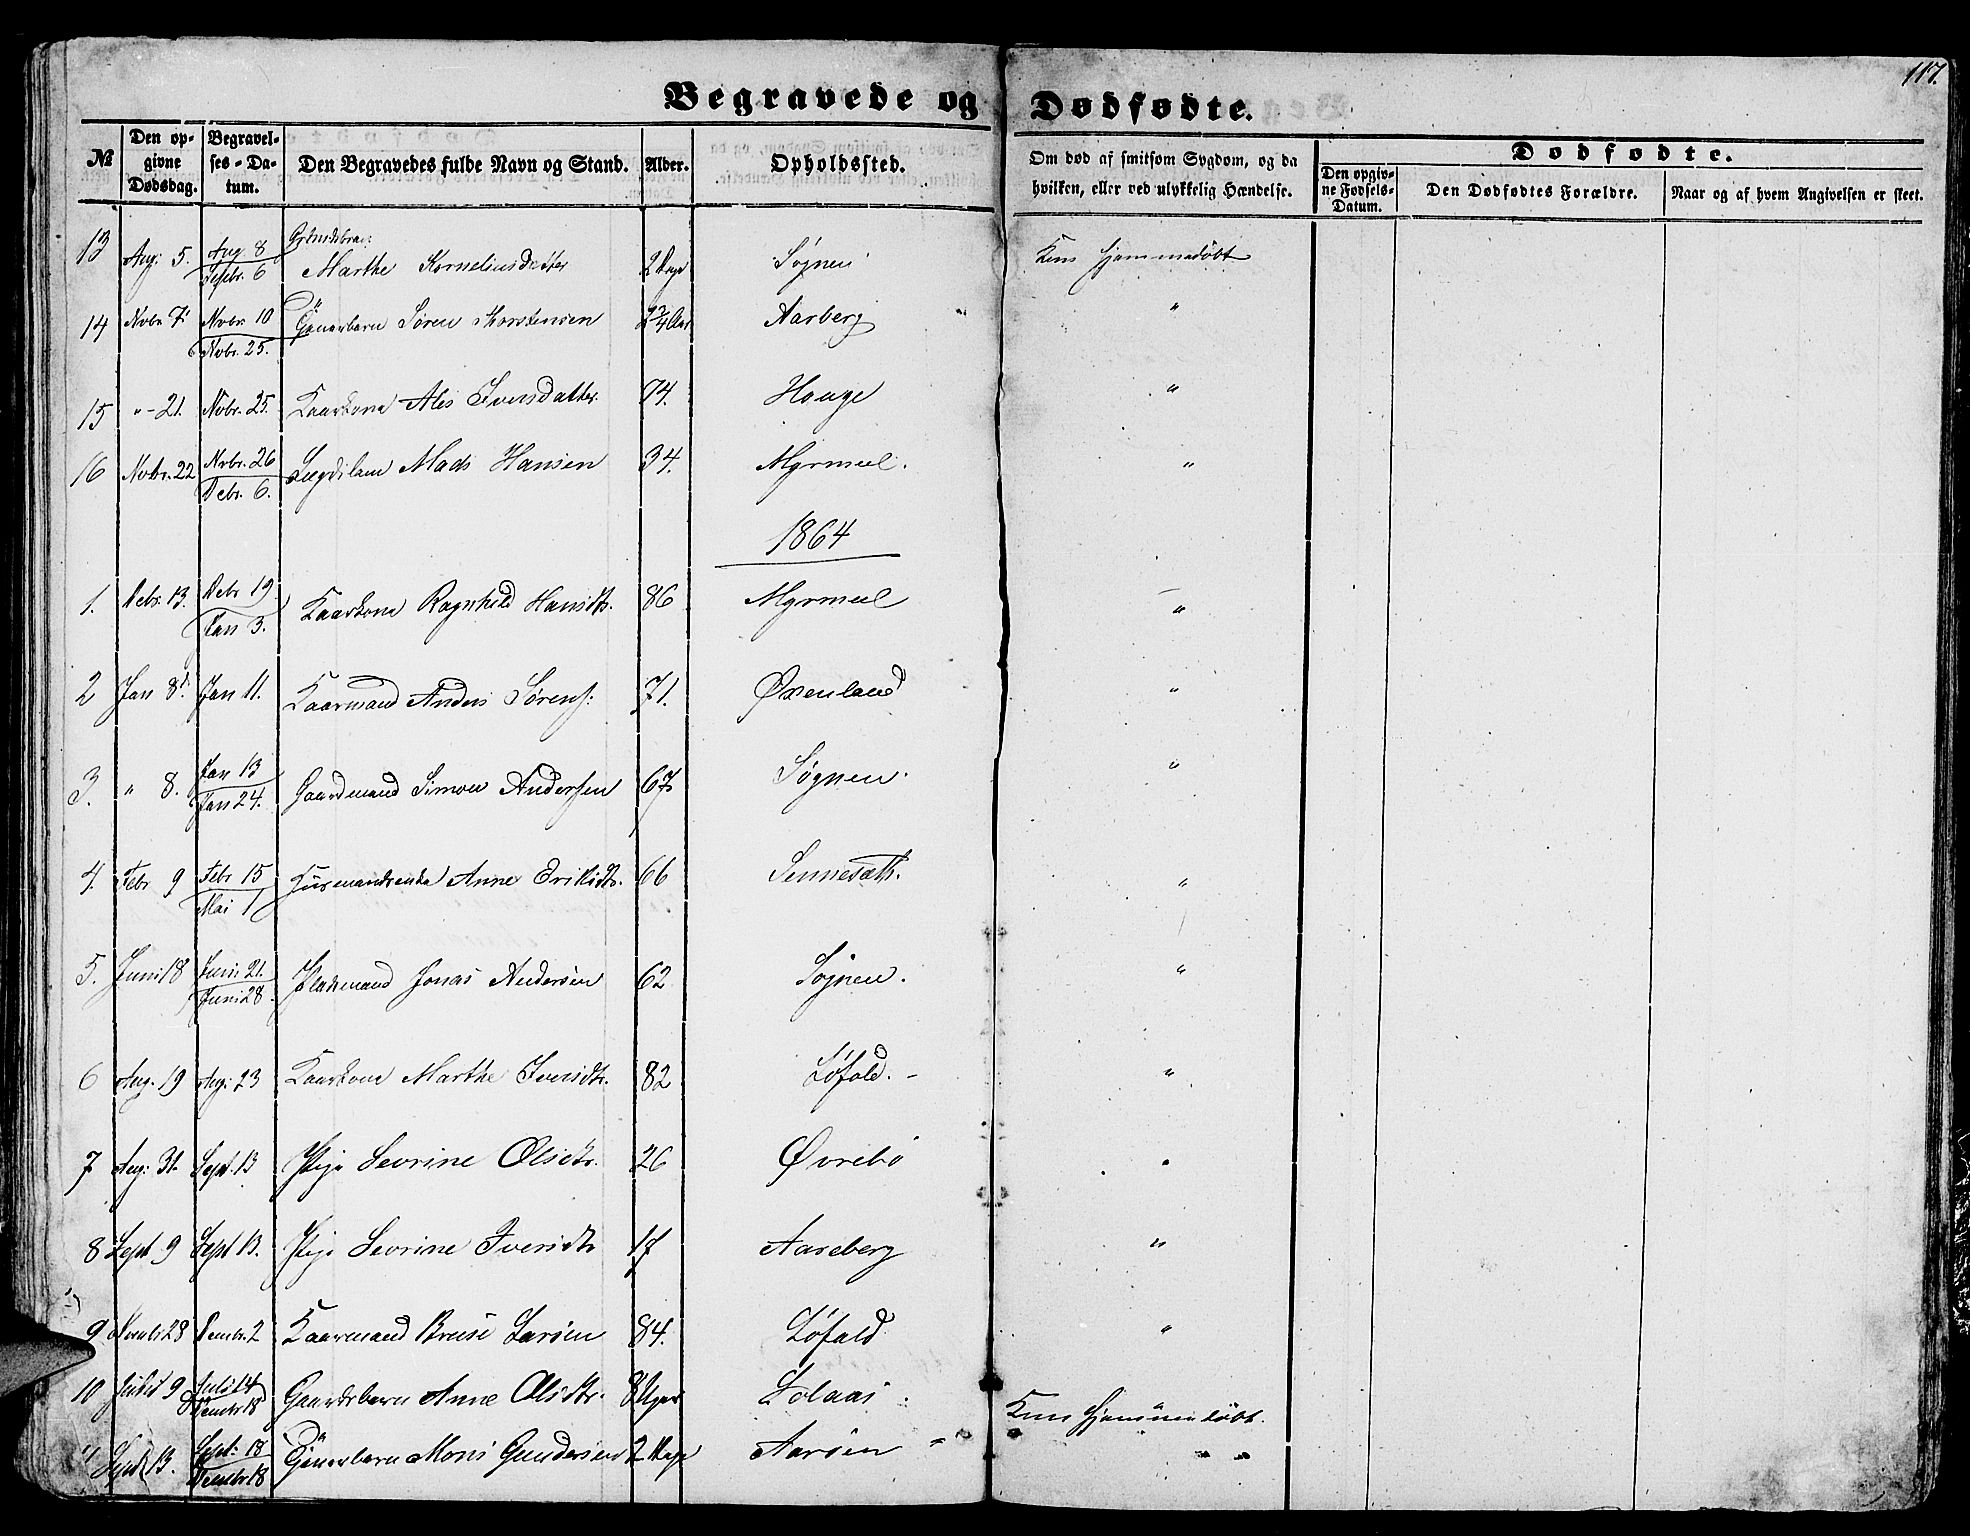 117.
Begravede og Dødfødte.
№ Den op-givne Dødsdag. Begravel-ses-Da-tum. Den Begravedes fulde Navn og Stand. Alder. Opholdssted. Om død af smitsom Sygdom, og da hvilken, eller ved ulykkelig Hændelse. Dødfødte. Den opgiv-ne Fødsels-Datum. Den Dødfødtes Forældre. Naar og af hvem Angivelsen er skeet.
13 Aug: 5. Aug 8 Septbr. 6 Marthe Korneliusdatter 2 Dage Søgnen Kun hjemmedöbt
14 Novbr 7 Novbr 10 Novbr. 25. Søren Thorstensen 2 3/4 Aar Aarberg "
15 " - 21. Novbr. 25. Kaarkone Ales Iversdatter 74. Haage "
16 Novbr. 22 Novbr. 26 Decbr. 6. Lægdslem Mads Hansen 34. Myrmeel. "
1864
1. Decbr. 13. Decbr 19. Jan 3. Kaarkone Ragnhild Hansdtr. 86 Myrmeel "
2 Jan 8 Jan 11. Kaarmand Anders Sørens: 71. Øxenland "
3. " 8. Jan 13 Jan 24. Gaardmand Simon Andersen 67 Søgnen. "
4. Febr. 9 Febr 15 Mai 1 Huusmandsenke Anne Eriksdtr. 66 Sennesæth. "
5. Juni 18 Juni 21. Juni 28. Pladsmand Jonas Andersen 62 Søgnen. "
6 Aug. 19 Aug: 23 Kaarkone Marthe Iversdtr. 82 Løfald. - "
7 Aug: 31. Sept. 13 Pige Sevrine Olsdtr. 26 Øvrebö "
8 Sept 9 Sept 13. Pige Sevrine Iversdtr 17 Aareberg "
9 28 2 Kaarmand Larsen 84. Løfald "
10 9 Juli 14 18 Gaardsbarn Anne Olsdtr. 8 Uger Lolaas Kun hjemmedöbt.
11 Sept 13. Sept: 18 18 Mons Gundersen 2 Dage Aarsen - " "